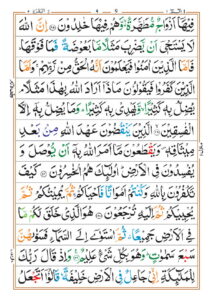 فِيْهَاۤ اَزْوَاجٌ مُّطَهَّرَةٌ وَّهُمْ فِيْهَا خٰلِدُوْنَ اِنَّ اللّٰهَ
لَا يَسْتَحْيٖۤ اَنْ يَّضْرِبَ مَثَلًا مَّا بَعُوْضَةً فَمَا فَوْقَهَا
فَاَمَّا الَّذِيْنَ اٰمَنُوْا فَيَعْلَمُوْنَ اَنَّهُ الْحَقُّ مِنْ رَّبِّهِمْ وَاَمَّا
الَّذِيْنَ كَفَرُوْا فَيَقُوْلُوْنَ مَاذَاۤ اَرَادَ اللّٰهُ بِهٰذَا مَثَلًا
يُضِلُّ بِهٖ كَثِيْرًا وَّيَهْدِيْ بِهٖ كَثِيْرًا وَمَا يُضِلُّ بِهٖۤ اِلَّا
الْفٰسِقِيْنَ الَّذِيْنَ يَنْقُضُوْنَ عَهْدَ اللّٰهِ مِنْۢ بَعْدِ
مِيْثَاقِهٖ وَيَقْطَعُوْنَ مَاۤ اَمَرَ اللّٰهُ بِهٖۤ اَنْ يُّوْصَلَ وَ
يُفْسِدُوْنَ فِي الْاَرْضِ اُولٰٓئِكَ هُمُ الْخٰسِرُوْنَ كَيْفَ
تَكْفُرُوْنَ بِاللّٰهِ وَكُنْتُمْ اَمْوَاتًا فَاَحْيَاكُمْ ثُمَّ يُمِيْتُكُمْ ثُمَّ
يُحْيِيْكُمْ ثُمَّ اِلَيْهِ تُرْجَعُوْنَ هُوَ الَّذِيْ خَلَقَ لَكُمْ مَّا
فِي الْاَرْضِ جَمِيْعًا ثُمَّ اسْتَوٰۤى اِلَى السَّمَآءِ فَسَوّٰىهُنَّ
سَبْعَ سَمٰوٰتٍ وَهُوَ بِكُلِّ شَيْءٍ عَلِيْمٌ وَاِذْ قَالَ رَبُّكَ
لِلْمَلٰٓئِكَةِ اِنِّيْ جَاعِلٌ فِي الْاَرْضِ خَلِيْفَةً قَالُوْۤا اَتَجْعَلُ